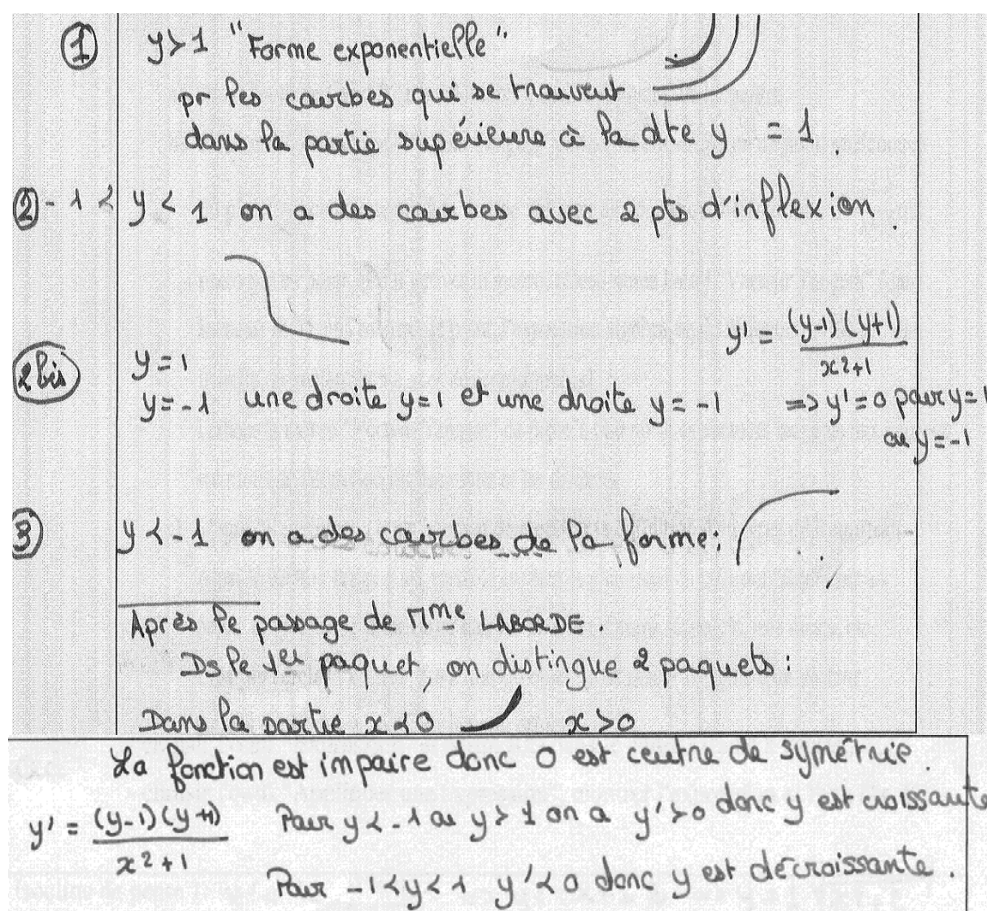 ① y > 1 "Forme exponentielle"
pr les courbes qui se trouvent
dans la partie supérieure à la dte y = 1.
② -1 < y < 1 on a des courbes avec 2 pts d'inflexion.
y' = (y-1)(y+1) / x²+1
2 bis y = 1
y = -1 une droite y=1 et une droite y = -1 => y' = 0 pour y = 1
ou y = -1
③ y < -1 on a des courbes de la forme :
Après le passage de Mme LABORDE.
Ds le 1er paquet, on distingue 2 paquets :
Dans la partie x < 0 x > 0
La fonction est impaire donc O est centre de symétrie.
y' = (y-1)(y+1) / x²+1 Pour y < -1 ou y > 1 on a y' > 0 donc y est croissante
Pour -1 < y < 1 y' < 0 donc y est décroissante.